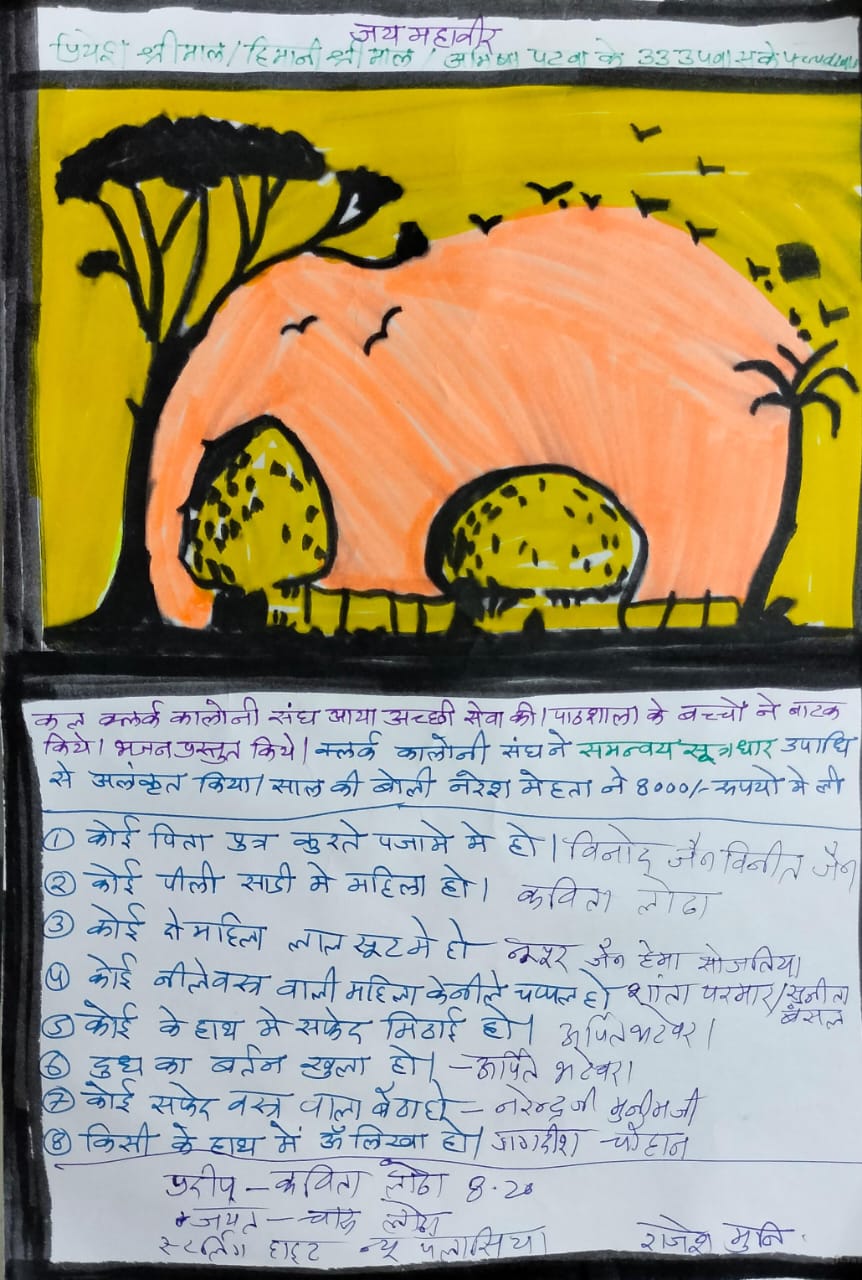 जय महावीर
प्रियेश श्रीमाल / हिमानी श्रीमाल / अमिषा पटवा के 33 उपवास के
कल क्लर्क कालोनी संघ आया अच्छी सेवा की। पाठशाला के बच्चों ने नाटक
किये। भजन प्रस्तुत किये। क्लर्क कालोनी संघ ने समन्वय सूत्रधार उपाधि
से अलंकृत किया। साल की बोली नरेश मेहता ने 8000/- रूपयो मे ली
① कोई पिता पुत्र कुरते पजामे मे हो। विनोद जैन विनीत जैन
② कोई पीली साडी मे महिला हो। कविता लोढा
③ कोई दो महिला लाल सूट मे हो जैन हेमा सोजतिया
④ कोई नीले वस्त्र वाली महिला के नीले चप्पल हो शांता परमार / सुनीता बंसल
⑤ कोई के हाथ मे सफेद मिठाई हो। अर्पित भटेवरा
⑥ दुध का बर्तन खुला हो। - अर्पित भटेवरा
⑦ कोई सफेद वस्त्र वाला बैठा हो - नरेन्द्र जी मुनीम जी
⑧ किसी के हाथ में ॐ लिखा हो। जगदीश चौहान
प्रदीप - कविता लोढा 8.20
जयंत - चारू लोढा
स्टर्लिंग हाइट न्यू पलासिया राजेश मुनि